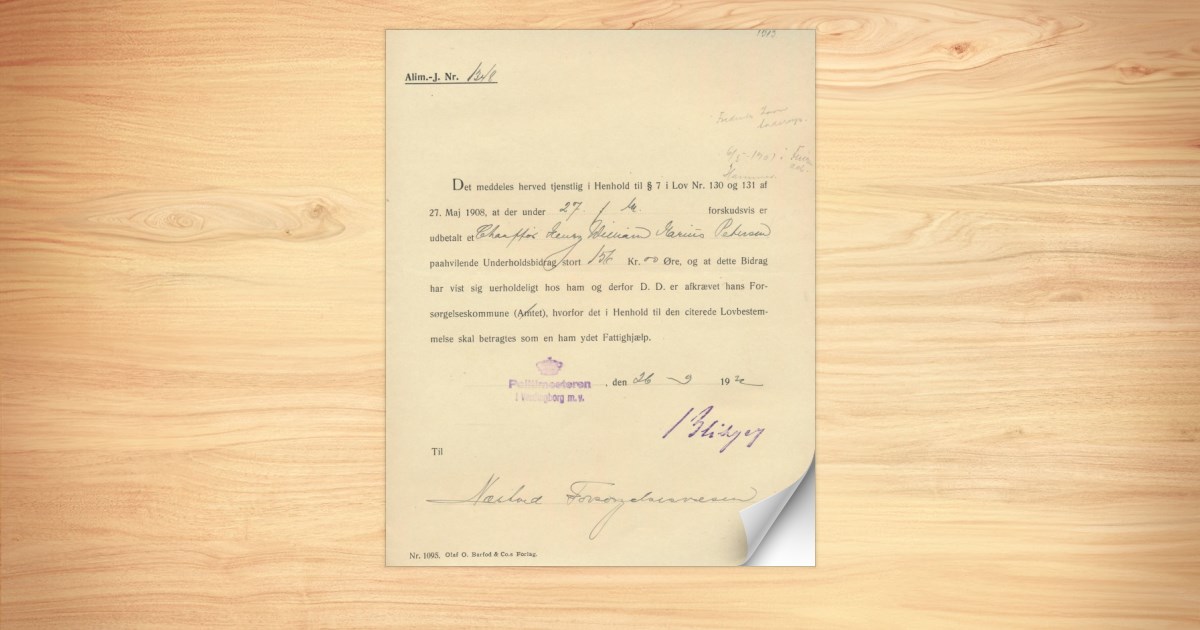 Alim.-J. Nr.
Det meddeles herved tjenstlig i Henhold til § 7 i Lov Nr. 130 og 131 af
27. Maj 1908, at der under 27 forskudsvis er
udbetalt et Chauffør Henry William Marius Petersen
paahvilende Underholdsbidrag stort Kr. 00 Øre, og at dette Bidrag
har vist sig uerholdeligt hos ham og derfor D. D. er afkrævet hans For-
sørgelseskommune (Amtet), hvorfor det i Henhold til den citerede Lovbestem-
melse skal betragtes som en ham ydet Fattighjælp.
Politimesteren , den 26 9 19
i Vordingborg m. v.
Til
Næstved Forsørgelsesvæsen
Nr. 1095. Olaf O. Barfod & Co.s Forlag.